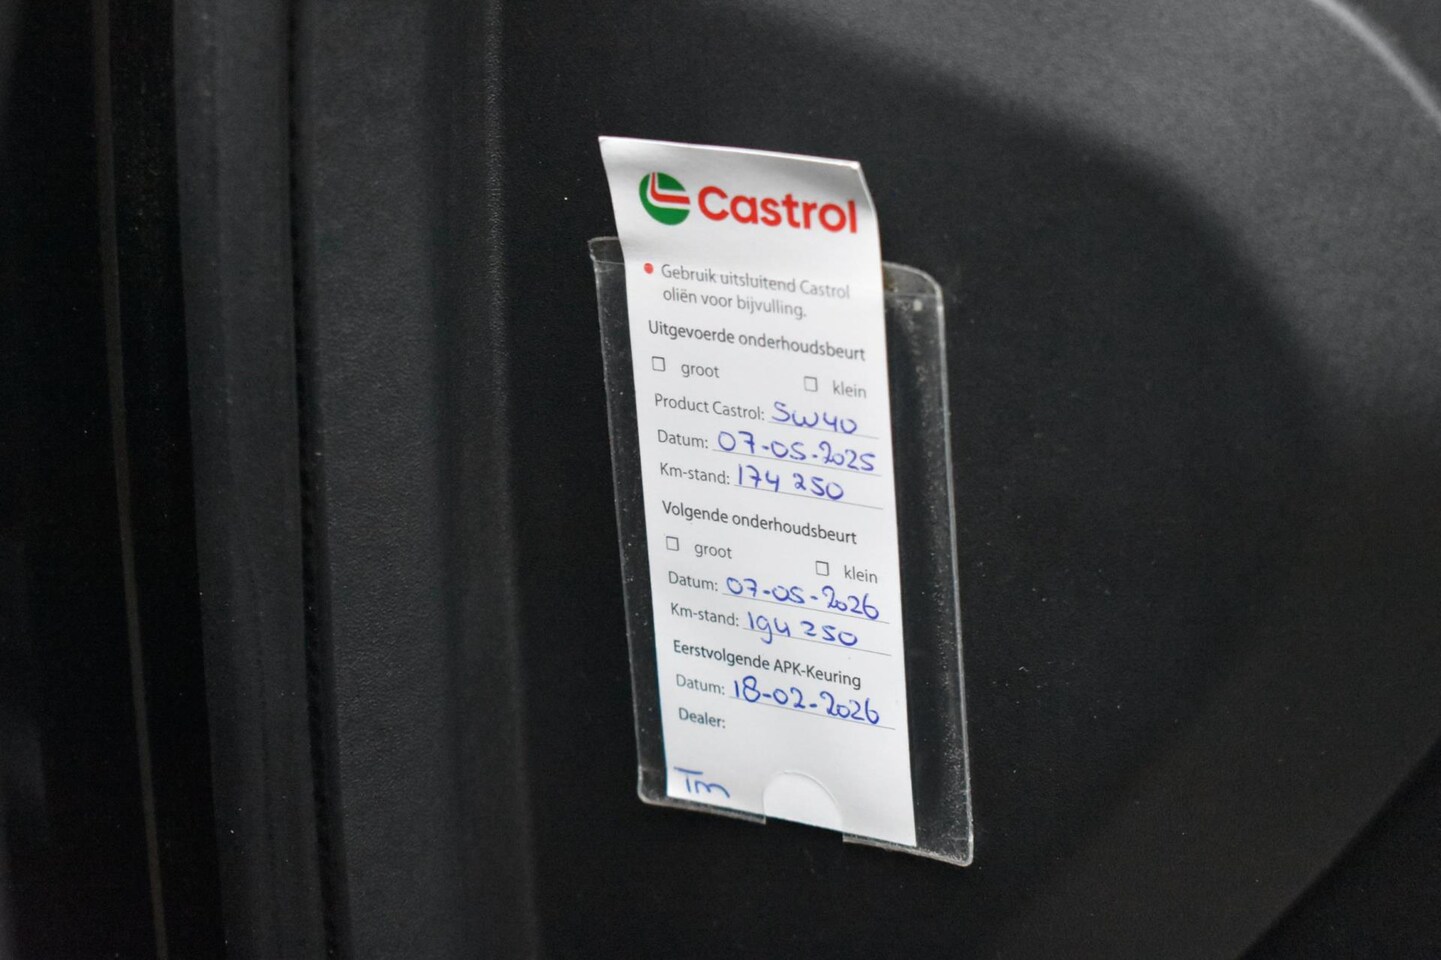 Castrol
• Gebruik uitsluitend Castrol
oliën voor bijvulling.
Uitgevoerde onderhoudsbeurt
☐ groot ☐ klein
Product Castrol: 5W40
Datum: 07-05-2025
Km-stand: 174 250
Volgende onderhoudsbeurt
☐ groot ☐ klein
Datum: 07-05-2026
Km-stand: 194 250
Eerstvolgende APK-Keuring
Datum: 18-02-2026
Dealer:
Tm